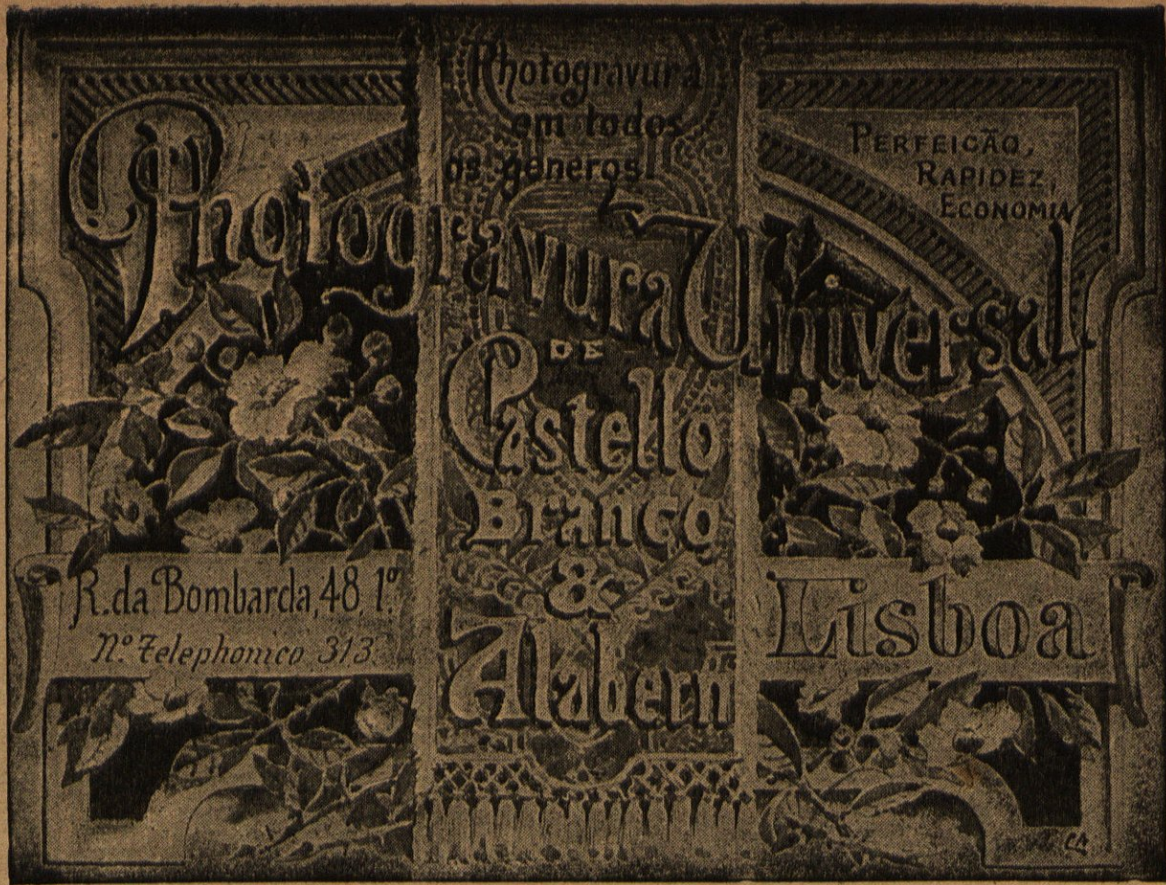 Photogravura
em todos
os generos
PERFEIÇÃO,
RAPIDEZ,
ECONOMIA
Photogravura Universal.
DE
Castello
Branco
&
Alabern
R. da Bombarda, 48, 1.º
N.º Telephonico 313.
Lisboa
CA